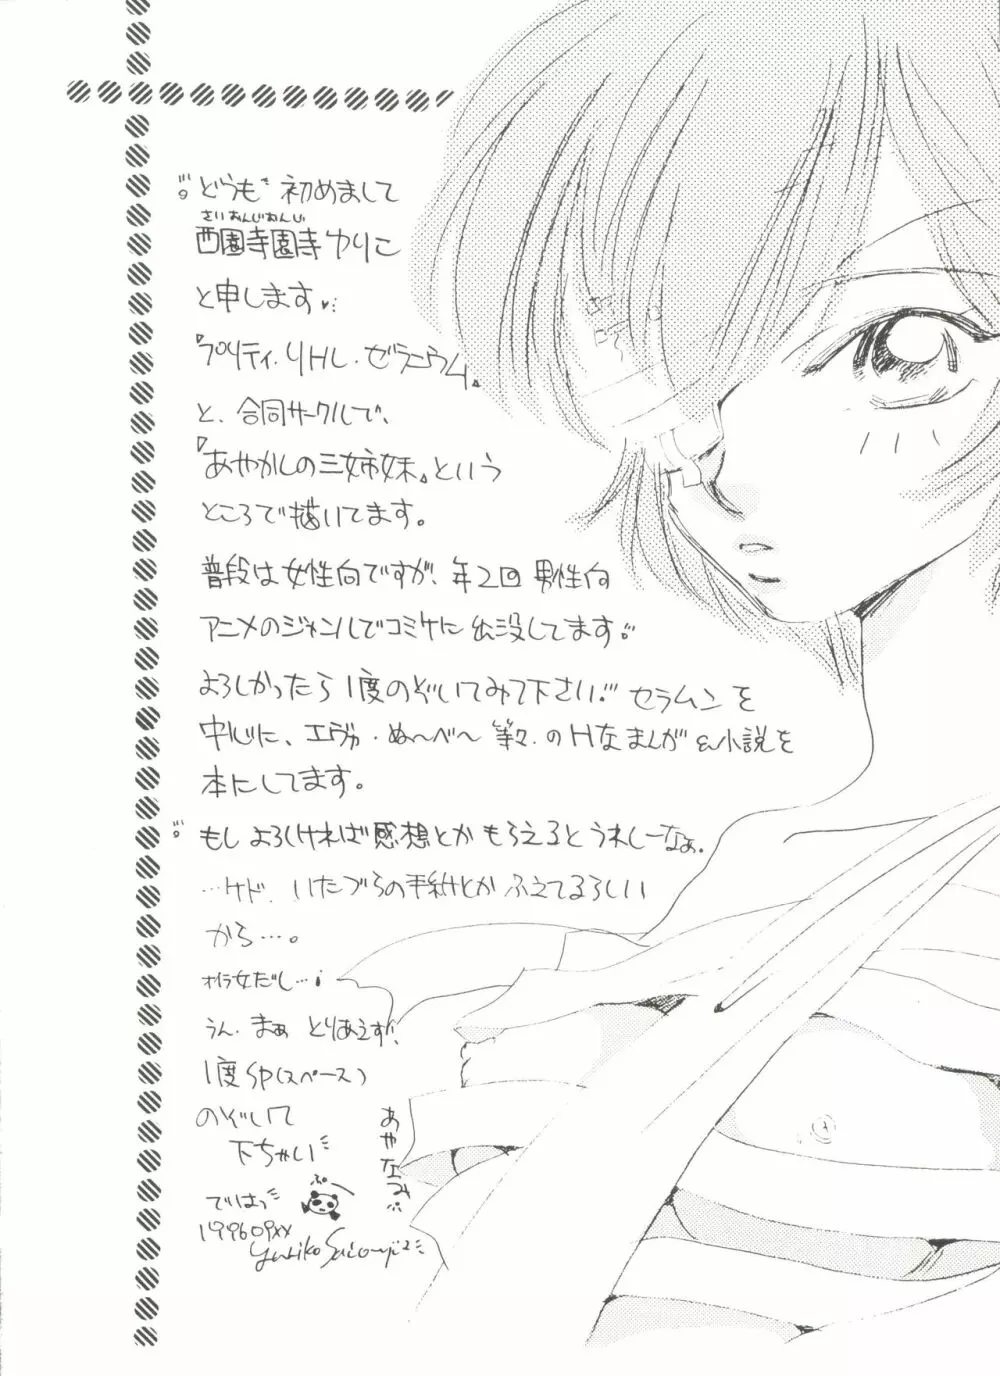 どうも 初めまして
さいおんじおんじ
西園寺園寺ゆりこ
と申します♥
『プリティ・リトル・ゼラニウム』
と、合同サークルで、
『あやかしの三姉妹』という
ところで描いてます。
普段は女性向ですが、年2回 男性向
アニメのジャンルでコミケに出没してます
よろしかったら1度のぞいてみて下さい! セラムンを
中心に、エヴァ・ぬ〜べ〜 等々のHなまんが&小説を
本にしてます。
もしよろしければ感想とかもらえるとうれしーなぁ。
…けど、いたづらの手紙とかふえてるらしい
から…。
オイラ女だし…!
うん、まぁ とりあえず、
1度SP(スペース)
のぞいて
下ちゃい
あやなみ
ぷー
ではっ
199609XX
Yuriko Saionji2